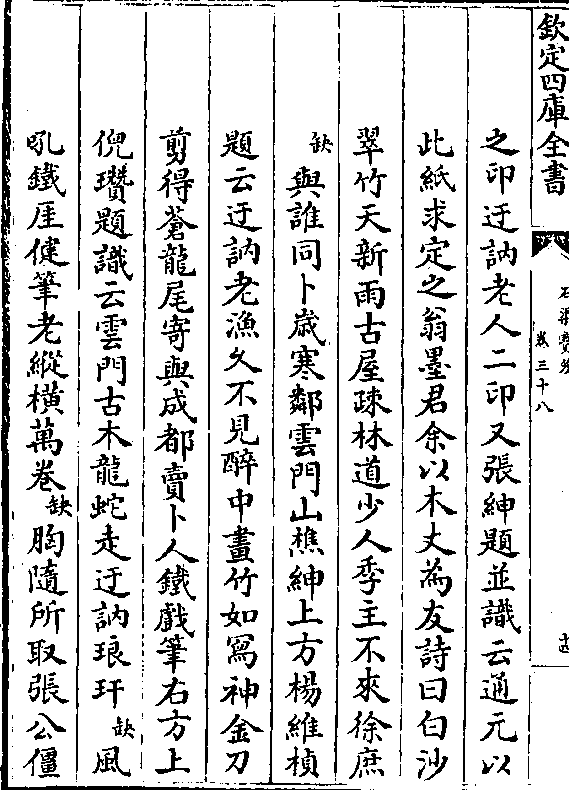 欽定四庫全書
石渠寶笈
卷三十八
之印迂訥老人二印又張紳題並識云通元以
此紙求定之翁墨君余以木丈為友詩曰白沙
翠竹天新雨古屋疎林道少人季主不來徐庶
缺與誰同卜歳寒鄰雲門山樵紳上方楊維楨
題云迂訥老漁久不見醉中畫竹如冩神金刀
剪得蒼龍尾寄與成都賣卜人鐵戲筆右方上
倪瓚題識云雲門古木龍蛇走迂訥琅玕缺風
吼鐵厓健筆老縱横萬巻缺胸隨所取張公僵